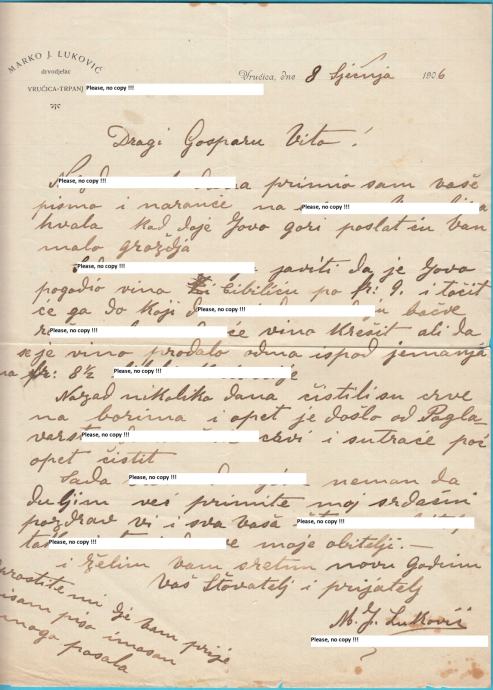 MARKO J. LUKOVIĆ
drvodjelac
VRUČICA-TRPANJ Please, no copy !!!
Vrućica, dne 8 Sječnja 1906
Dragi Gosparu Vito!
Please, no copy !!! primio sam vaše
pismo i naranče na Please, no copy !!!
hvala kad dođe Jovo gori poslat ću vam
malo grožđa
Please, no copy !!! javiti da je Jovo
pogodio vina Cibiliću po fr: 9. i točit
će ga do koji Please, no copy !!! bačve
Please, no copy !!! vina Krešit ali da
se je vino prodalo odma ispod jemanja
na fr: 8½ Please, no copy !!!
Nazad nikolika dana čistili su crve
na borima i opet je došlo od Pogla-
varst Please, no copy !!! crvi i sutra će poć
opet čistit
Sada Please, no copy !!! neman da
duljim već primite moj srdačni
pozdrav vi i sva vaša Please, no copy !!!
Please, no copy !!! moje obitelji.—
i želim vam sretnu novu godinu
Vaš Štovatelj i prijatelj
M. J. Luković
Please, no copy !!!
prostite mi dje vam prije
nisam piso imosan
mnogo posala